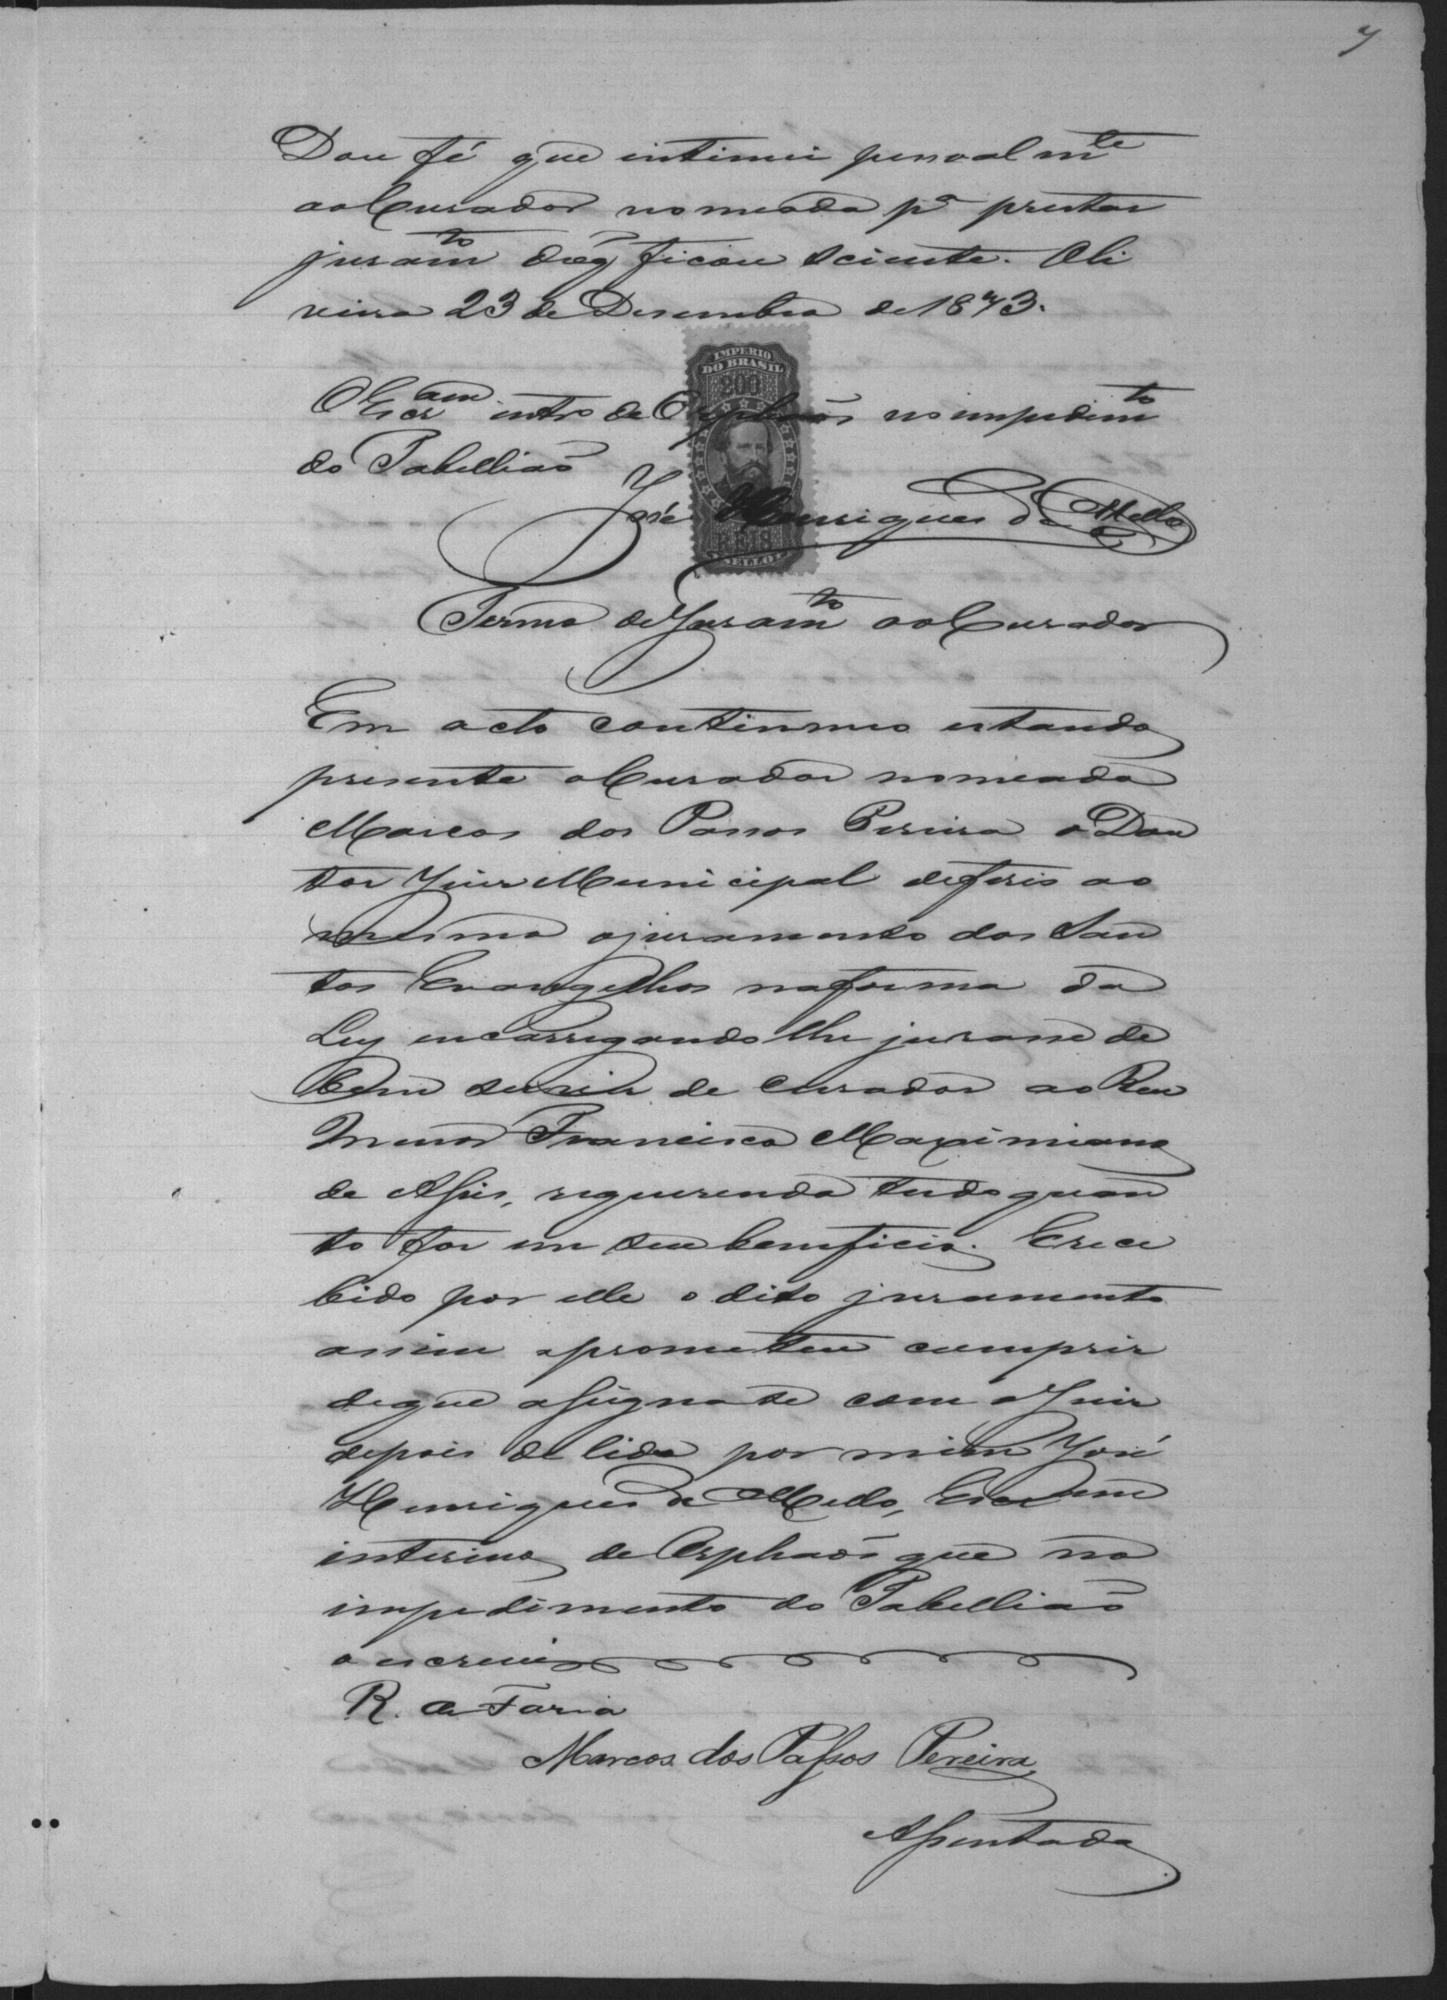 7
Dou fé que intimei pessoalmte
ao Curador nomeado pa prestar
juramto doq ficou sciente. Oli
veira 23 de Desembro de 1873.
IMPERIO
DO BRASIL
200
REIS
SELLO
O Escram intro de Orphãos no impedimto
do Tabellião
José Henriques de Mello
Termo de Juramto ao Curador
Em acto continuo estando
presente o Curador nomeado
Marcos dos Passos Pereira o Dou
tor Juiz Municipal deferio ao
mesmo o juramento dos San
tos Evangelhos na forma da
Ley encarregando lhe jurasse de
bem servir de curador ao Reu
menor Francisco Maximiano
de Assis, requerendo tudo quan
to for em seu beneficio. E rece
bido por elle o dito juramento
assim o prometteu cumprir
de que assigna se com o Juiz
depois de lido por mim José
Henriques de Mello, Escram
interino de Orphãos que no
impedimento do Tabellião
o escrevi
R. de Faria
Marcos dos Passos Pereira
Assentada